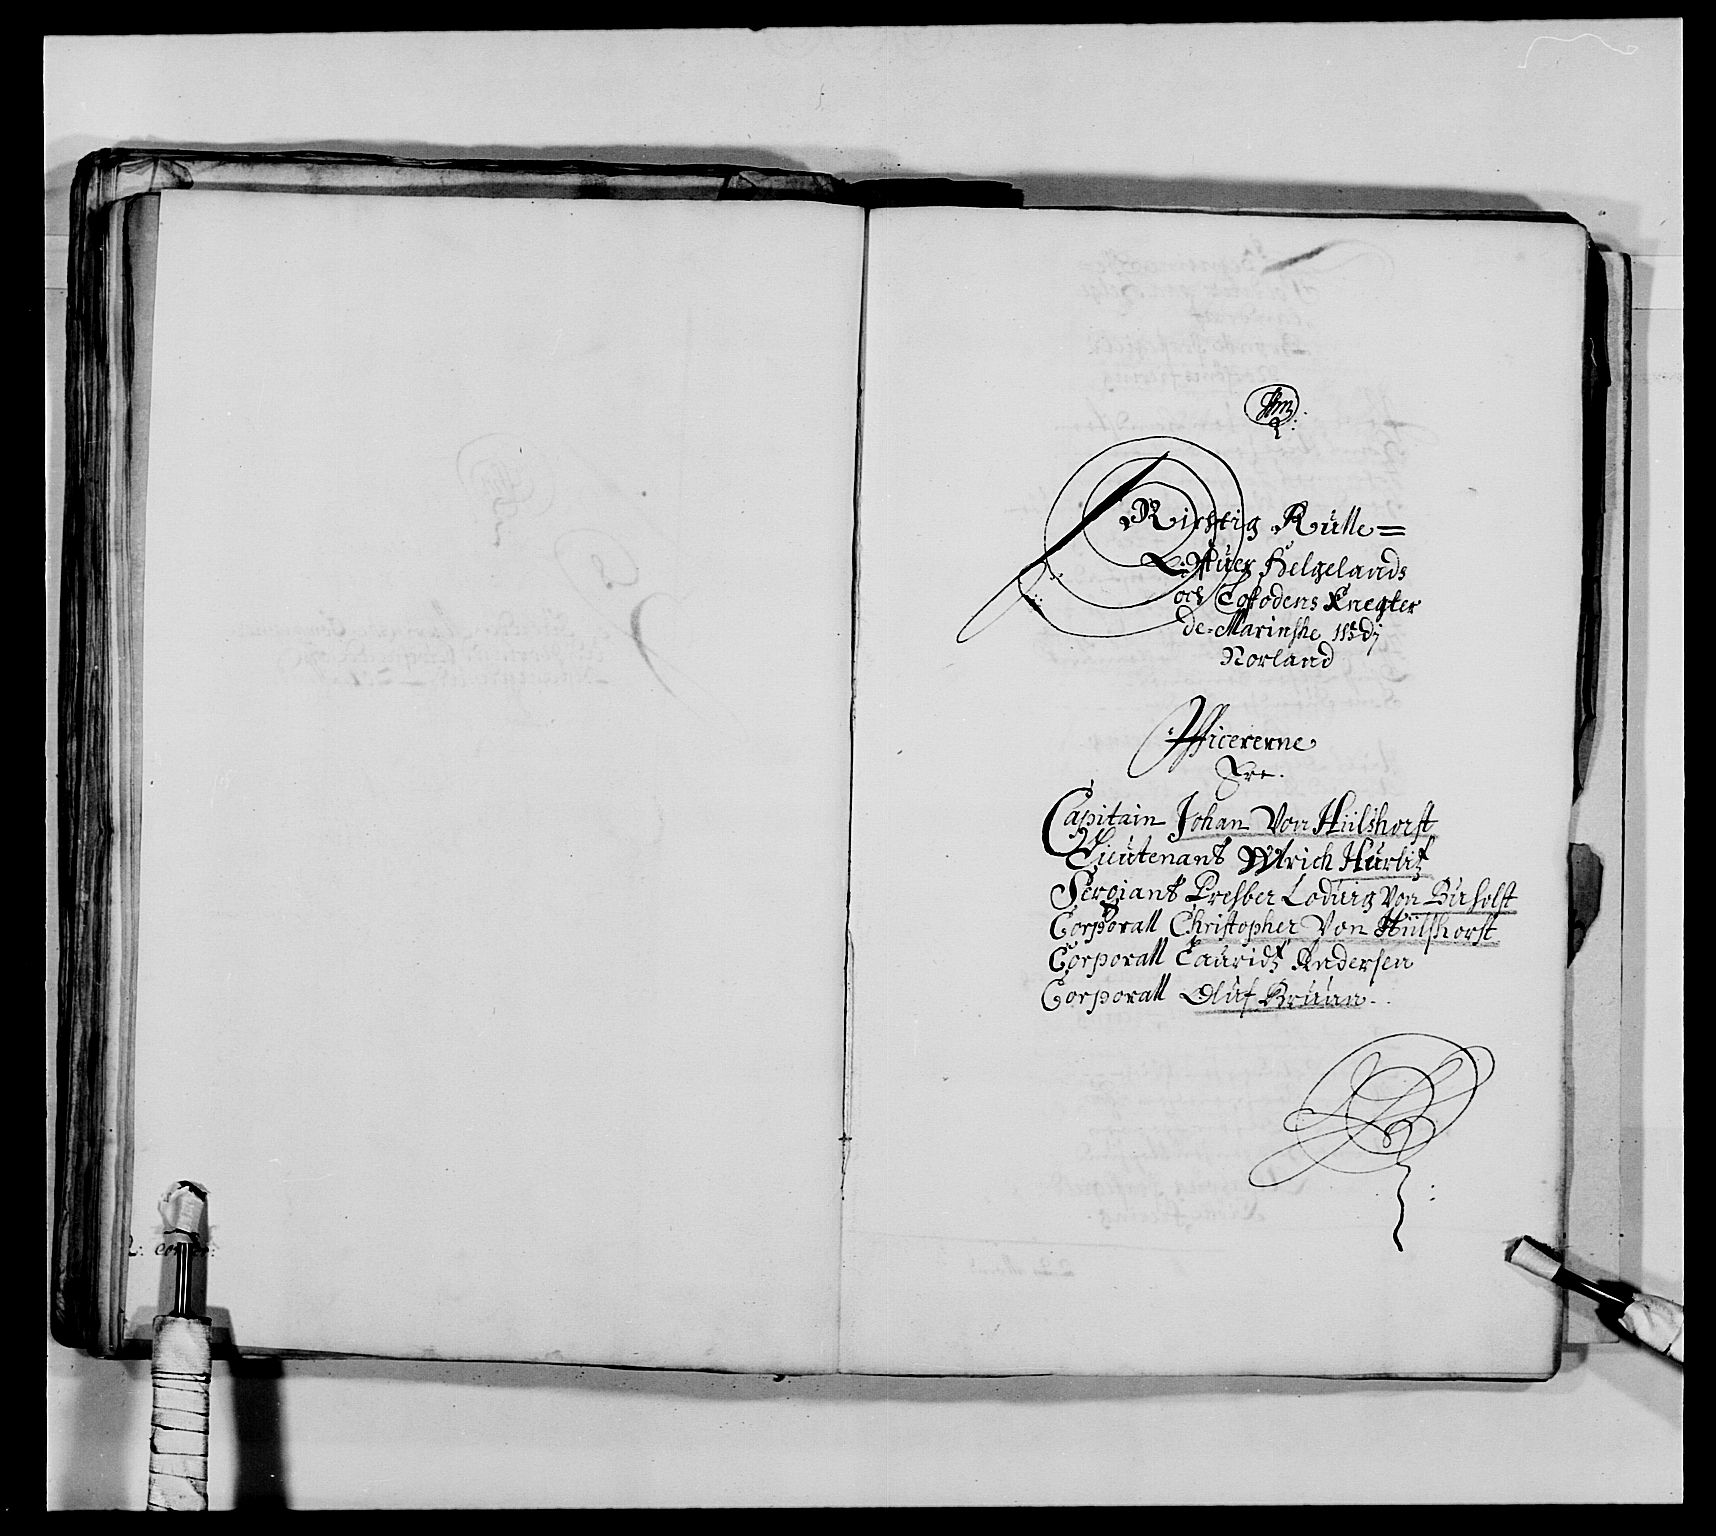 Richtig Rulle=
Offuer Helgelands
och Lofodens Knegter
de Marinshe udj
Norland
Officererne
Ere.
Capitain Johan Von Hülshorst
Lieutenant Wlrich Hurlitz
Sergiant Presber Lodwig Von Buholst
Corporall Christopher Von Hülshorst
Corporall Lauridtz Andersen
Corporall Oluf Bruun.